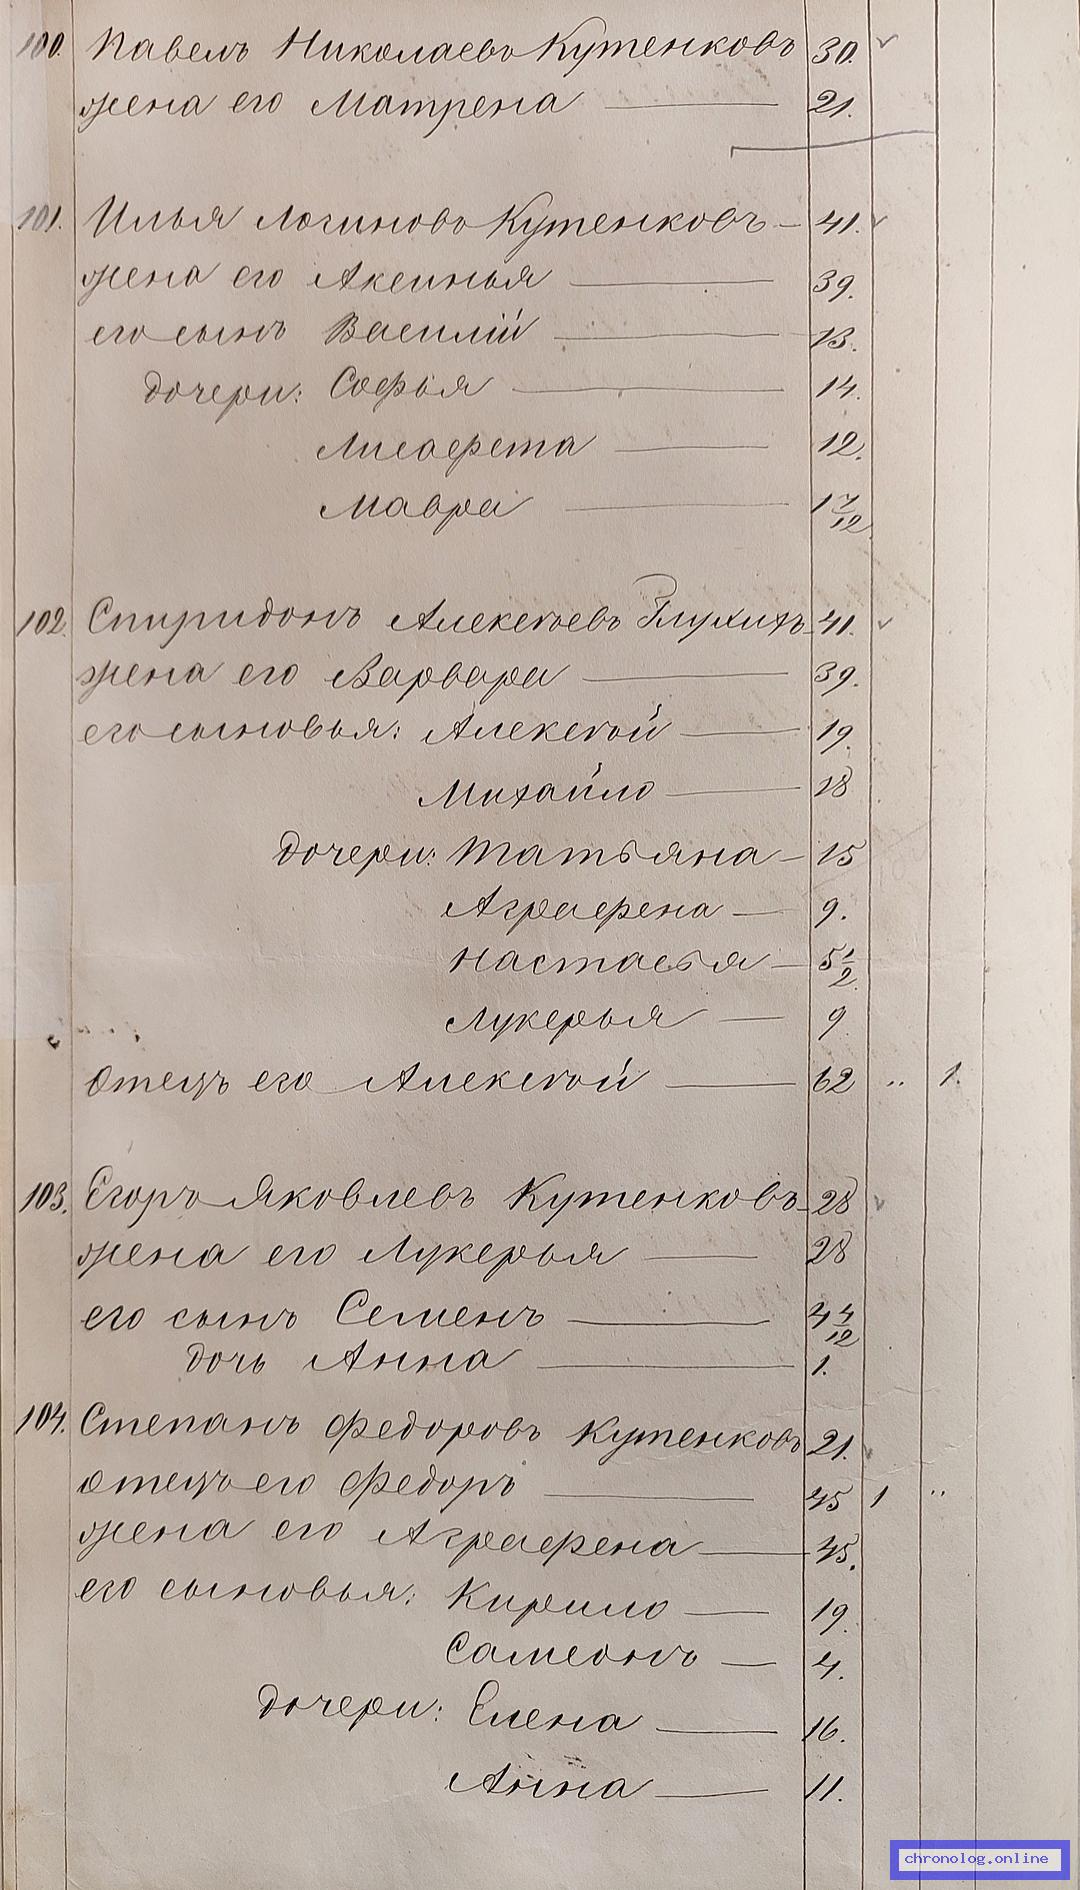 100. Павелъ Николаевъ Кутенковъ 30.
жена его Матрена 21.
101. Илья Логиновъ Кутенковъ 41.
жена его Аксинья 39.
его сынъ Василій 13.
дочери: Софья 14.
Лисафета 12.
Мавра 1 7/12
102. Спиридонъ Алексѣевъ Глухихъ 41.
жена его Варвара 39.
его сыновья: Алексѣй 19.
Михайло 18
дочери: Татьяна 15
Аграфена 9.
Настасья 5 1/2
Лукерья 9
отецъ его Алексѣй 62 .. 1.
103. Егоръ Яковлевъ Кутенковъ 28
жена его Лукерья 28
его сынъ Семенъ 4 4/12
дочь Анна 1.
104. Степанъ Федоровъ Кутенковъ 21.
отецъ его Федоръ 45 1 ..
жена его Аграфена 45.
его сыновья: Кирило 19.
Самсонъ 4.
дочери: Елена 16.
Анна 11.
chronolog.online